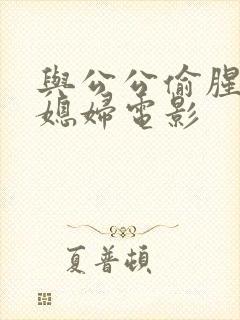 與公公偷腥
媳婦電影
夏普頓